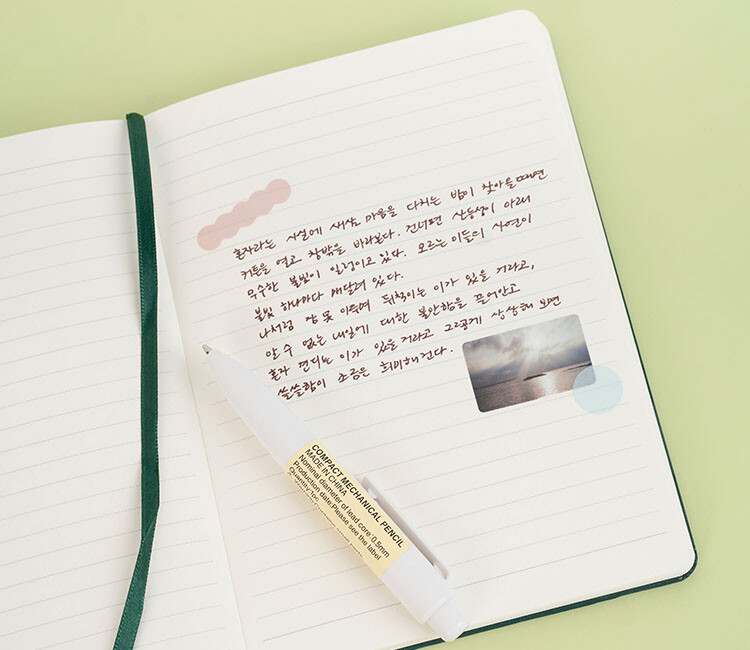 혼자라는 사실에 새삼 마음을 다치는 밤이 찾아올때면
커튼을 열고 창밖을 바라본다. 건너편 산등성이 아래
무수한 불빛이 일렁이고 있다. 모르는 이들의 사연이
불빛 하나마다 매달려 있다.
나처럼 잠 못 이루며 뒤척이는 이가 있을 거라고,
알 수 없는 내일에 대한 불안함을 끌어안고
혼자 견디는 이가 있을 거라고 그렇게 상상해 보면
쓸쓸함이 조금은 희미해진다.
COMPACT MECHANICAL PENCIL
MADE IN CHINA
Nominal diameter of lead core:0.5mm
Production date:Please see the label